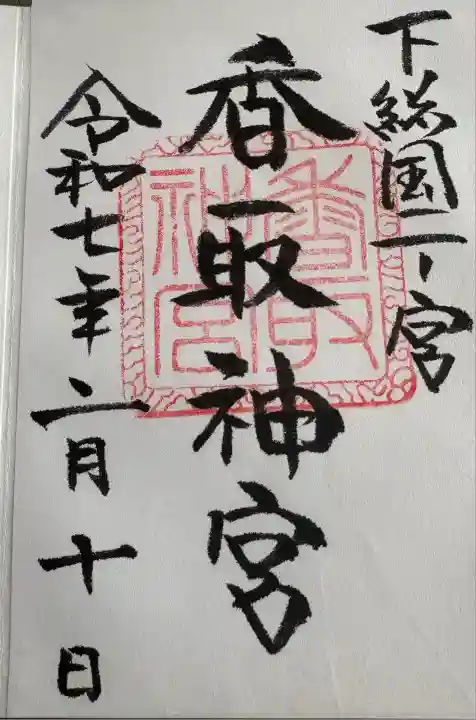 下総国一ノ宮
香取神宮
令和七年二月十日
香取
神宮